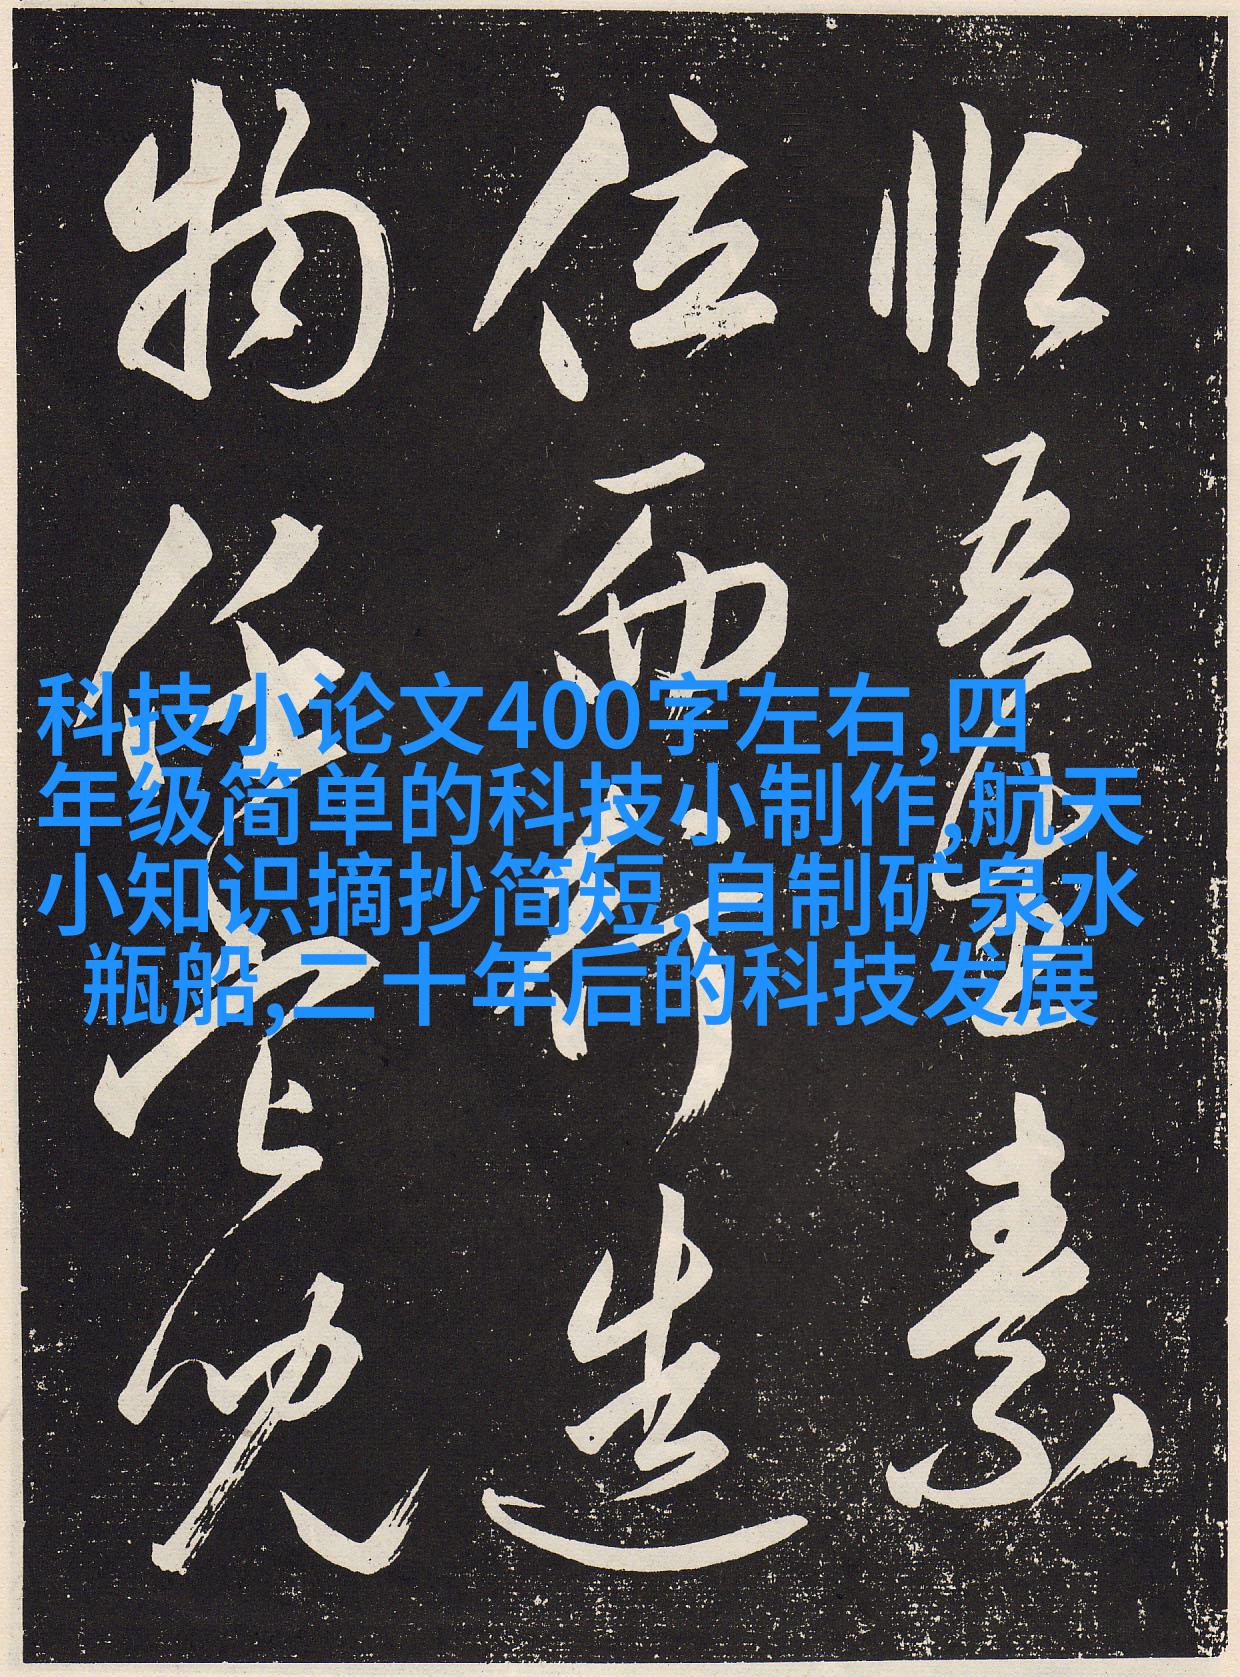 吾素
位而行造
物
科技小论文400字左右,四
年级简单的科技小制作,航天
小知识摘抄简短,自制矿泉水
瓶船,二十年后的科技发展